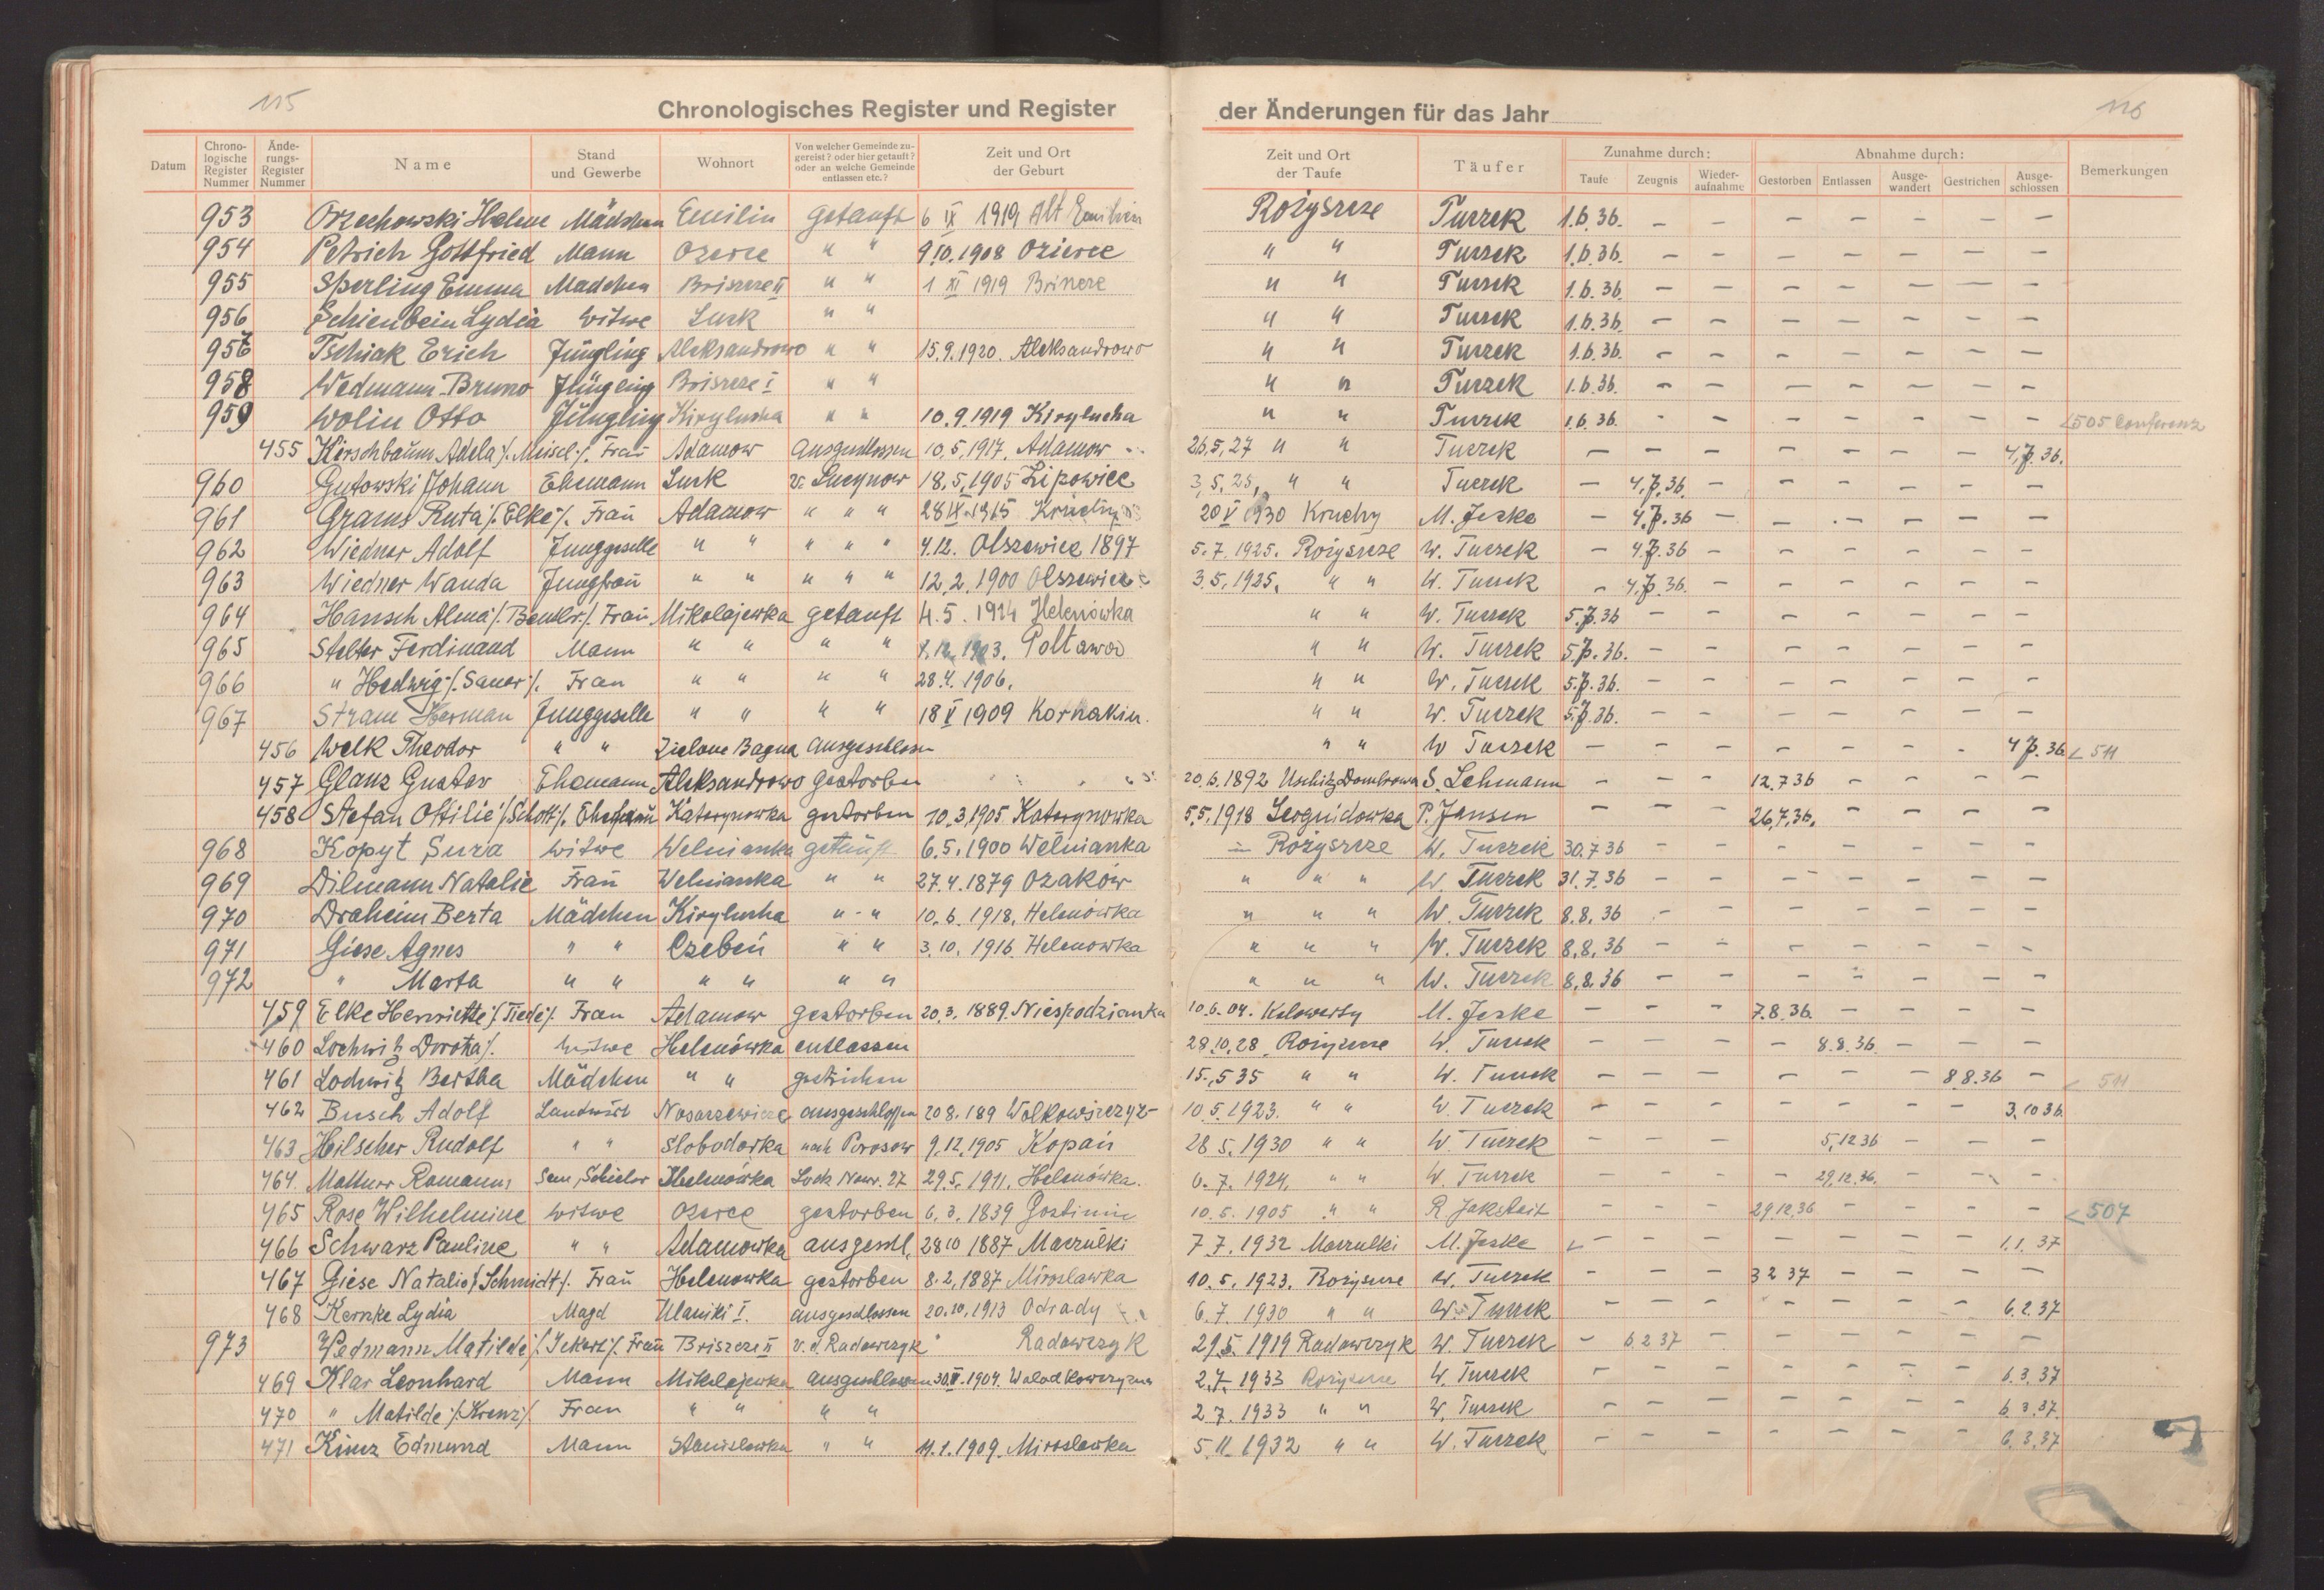 115
116
Chronologisches Register und Register der Änderungen für das Jahr
Datum | Chrono-logische Register Nummer | Ände-rungs-Register Nummer | Name | Stand und Gewerbe | Wohnort | Von welcher Gemeinde zu-gereist? oder hier getauft? oder an welche Gemeinde entlassen etc.? | Zeit und Ort der Geburt | Zeit und Ort der Taufe | Täufer | Zunahme durch: Taufe | Zeugnis | Wieder-aufnahme | Abnahme durch: Gestorben | Entlassen | Ausge-wandert | Gestrichen | Ausge-schlossen | Bemerkungen
953 Orzechowski Helene Mädchen Emilin getauft 6 IX 1919 Alt Emilin Rożyszcze Tuczek 1.6.36. – – – – – – –
954 Petrich Gottfried Mann Ozerce " " 9.10.1908 Ozierce " " Tuczek 1.6.36. – – – – – – –
955 Sperling Emma Mädchen Briszcze II " " 1 XI 1919 " " Tuczek 1.6.36. – – – – – – –
956 Schienbein Lydia Witwe Luck " " " " Tuczek 1.6.36. – – – – – – –
957 Tschiak Erich Jüngling Aleksandrowo " " 15.9.1920. Aleksandrowo " " Tuczek 1.6.36. – – – – – – –
958 Wedmann Bruno Jüngling Briszcze I " " " " Tuczek 1.6.36. – – – – – – –
959 Wolin Otto Jüngling Kirylucha " " 10.9.1919 Kirylucha " " Tuczek 1.6.36. – – – – – – – <505 Conferenz
455 Kirschbaum Adela /. Meisel ./. Frau Adamow Ausgeschlossen 10.5.1917. Adamow 26.5.27 " " Tuczek – – – – – – – 4.7.36.
960 Gutowski Johann Ehemann Luck v. Lucynow 18.5.1905 Lipowiec 3.5.25, " " Tuczek – 4.7.36. – – – – – –
961 Grams Ruta /. Elke ./. Frau Adamow " " " 28 IX 1915 Kruchy 20 V 1930 Kruchy M. Jeske – 4.7.36 – – – – – –
962 Wiedner Adolf Junggeselle " " " " " 4.12. Olszewiec 1897 5.7.1925. Rożyszcze W. Tuczek – 4.7.36 – – – – – –
963 Wiedner Wanda Jungfrau " " " " " 12.2.1900 Olszewiec 3.5.1925. " " W. Tuczek – 4.7.36. – – – – – –
964 Hansch Alma /. Beutler ./. Frau Mikolajewka getauft 4.5.1914 Helenówka " " W. Tuczek 5.7.36 – – – – – – –
965 Stelter Ferdinand Mann " " " " Poltawa " " W. Tuczek 5.7.36. – – – – – – –
966 " Hedwig /. Sauer ./. Frau " " " " 28.4.1906. " " W. Tuczek 5.7.36. – – – – – – –
967 Stram Herman Junggeselle " " " " 18 V 1909 Kornakin. " " W. Tuczek 5.7.36. – – – – – – –
456 Welk Theodor " " Zielone Bagna ausgeschlossen " " W Tuczek – – – – – – – 4 7.36 <511
457 Glanz Gustav Ehemann Aleksandrowo gestorben 20.6.1892 Uschitz Dombrowa S. Lehmann – – – 12.7.36 – – – –
458 Stefan Ottilie /. Schott ./. Ehefrau Katerynowka gestorben 10.3.1905 Katerynowka 5.5.1918 P. Jansen – – – 26.7.36. – – – –
968 Kopyt Sura Witwe Welnianka getauft 6.5.1900 Welnianka Rożyszcze W. Tuczek 30.7.36 – – – – – – –
969 Dilmann Natalie Frau Welnianka " " 27.4.1879 Ozakow " " " W. Tuczek 31.7.36 – – – – – – –
970 Draheim Berta Mädchen Kirylucha " " 10.6.1918. Helenówka " " " W. Tuczek 8.8.36 – – – – – – –
971 Giese Agnes " " Czebeń " " 3.10.1916. Helenowka " " " W. Tuczek 8.8.36 – – – – – – –
972 " Marta " " " " " " " " " W. Tuczek 8.8.36 – – – – – – –
459 Elke Henriette /. Tiede ./. Frau Adamow gestorben 20.3.1889. Niespodzianka 10.6.04. Kolowerty M. Jeske – – – 7.8.36. – – – –
460 Lochwitz Dorota /. Witwe Helenówka entlassen 28.10.28. Rożyszcze W. Tuczek – – – – 8.8.36 – – –
461 Lochwitz Bertha Mädchen " " gestrichen 15.5.35 " " W. Tuczek – – – – – – 8 8.36 – < 511
462 Busch Adolf Landwirt ausgeschlossen 20 8.189 10.5.1923. " " W. Tuczek – – – – – – – 3.10 36.
463 Hilscher Rudolf " " Slobodarka nach Porosow 9.12.1905 Kopań 28 5.1930 " " W. Tuczek – – – – 5.12 36 – – –
464. Helenówka 29.5.1911. Helenówka. 6.7.1924. " " W. Tuczek – – – – 29.12.36. – – –
465 Rose Wilhelmine Witwe Ozerce gestorben 6.3.1839 Gostinin 10.5.1905 " " R. Jaksteit – – – 29.12.36 – – – – <507
466 Schwarz Pauline " " Adamowka ausgeschl. 28 10 1887 Marzulki 7.7.1932 Marzulki M. Jeske – – – – – – – 1.1.37
467 Giese Natalie /. Schmidt ./. Frau Helenowka gestorben 8.2.1887 Miroslawka 10.5.1923. Rożyszcze W. Tuczek – – – 3 2 37 – – – –
468 Kernke Lydia Magd Ulaniki I. ausgeschlossen 20.10.1913 Odrady 6.7.1930 " " W. Tuczek – – – – – – – 6.2.37
973 Wedmann Matilde /. Ickert ./. Frau Briszcze II v. d. Radawczyk Radawczyk 29.5.1919 Radawczyk W. Tuczek – 6 2 37 – – – – – –
469 Klar Leonhard Mann Mikolajewka ausgeschlossen 2.7.1933 Rożyszcze W. Tuczek – – – – – – – 6.3.37
470 " Matilde /. Krenz ./. Frau " " " " 2.7.1933 " " W. Tuczek – – – – – – – 6.3.37.
471 Edmund Mann Stanislawka " " 11.1.1909. Miroslawka 5.11.1932 " " W. Tuczek – – – – – – – 6.3.37